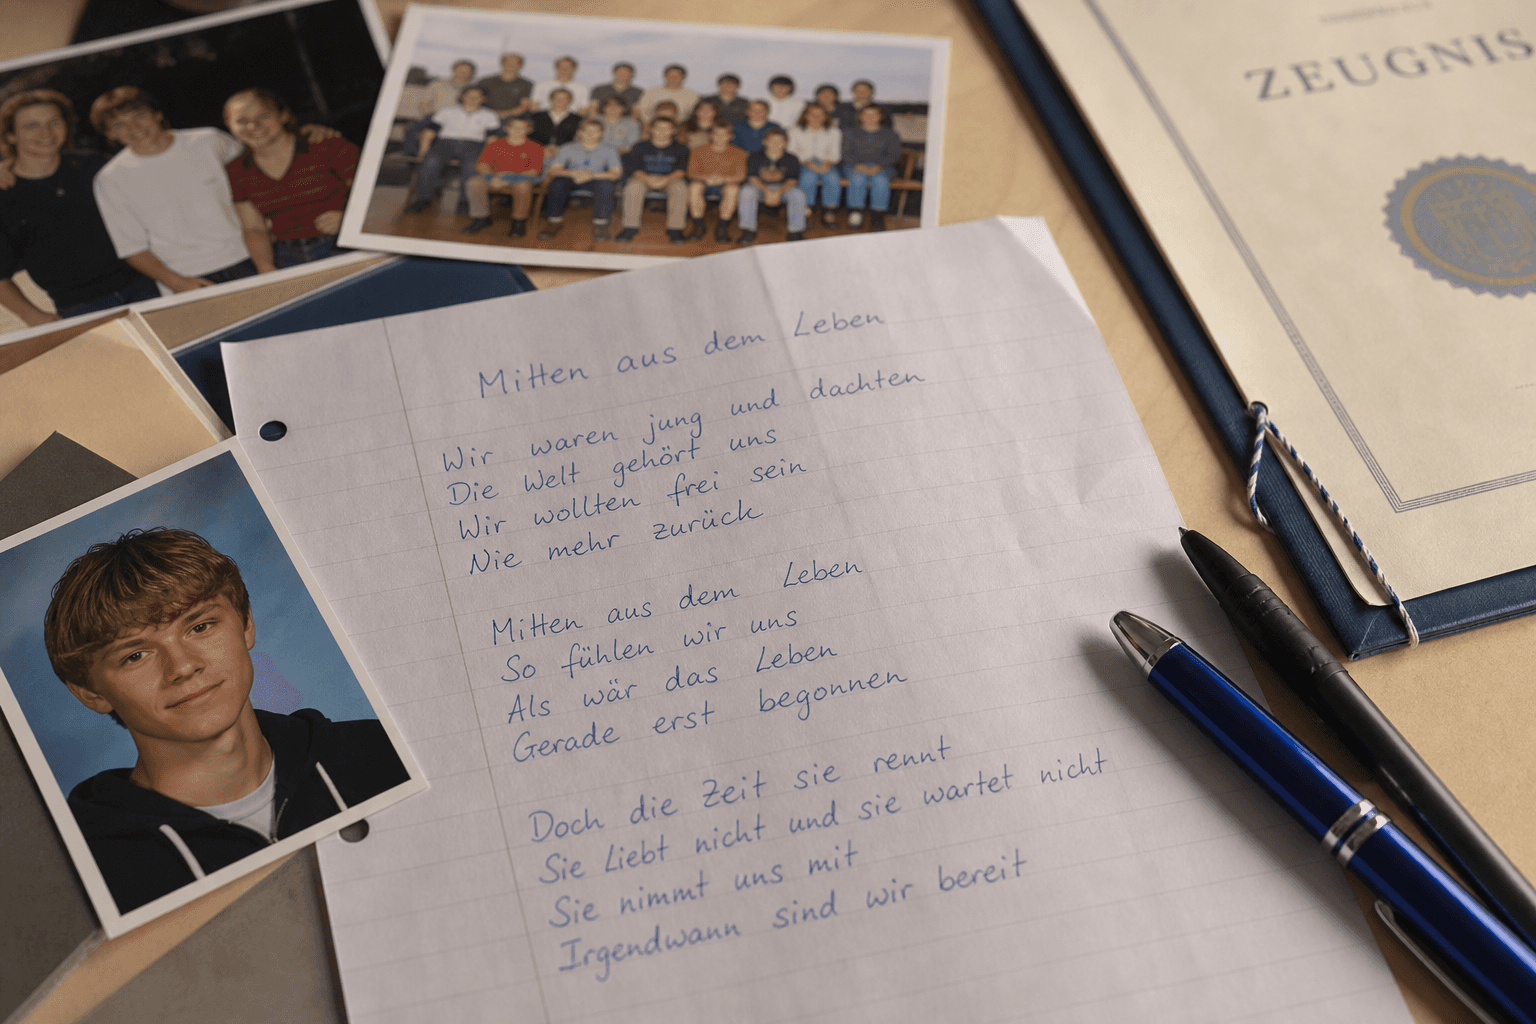 ZEUGNIS
Mitten aus dem Leben
Wir waren jung und dachten
Die Welt gehört uns
Wir wollten frei sein
Nie mehr zurück
Mitten aus dem Leben
So fühlen wir uns
Als wär das Leben
Gerade erst begonnen
Doch die Zeit sie rennt
Sie Liebt nicht und sie wartet nicht
Sie nimmt uns mit
Irgendwann sind wir bereit